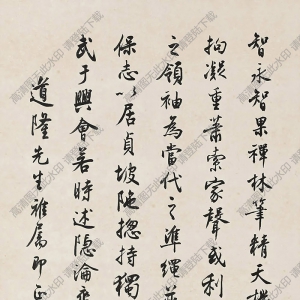 智永智果禪林筆精天機
拘凝重蕭索家聲或利
之領袖為當代之準繩並
保志以居貞坡陁揔持獨
武于興會若時述隐淪齊
道隆先生雅属即正